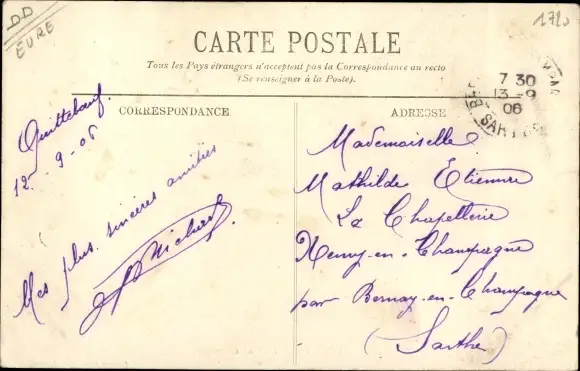 DD
EURE
1720
CARTE POSTALE
Tous les Pays étrangers n'acceptent pas la Correspondance au recto
(Se renseigner à la Poste).
CORRESPONDANCE
Quittebeuf
12 - 9 - 06
Mes plus sincères amitiés
ADRESSE
7 30
13 - 9
06
Mademoiselle
Mathilde Etienne
La Chapellerie
Neuvy-en-Champagne
par Bernay-en-Champagne
(Sarthe)